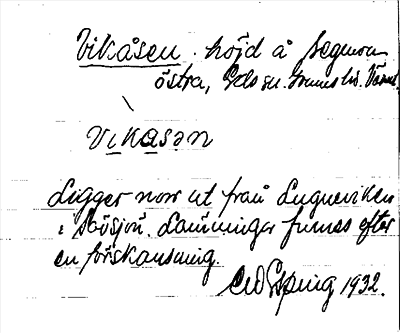 Vikåsen. höjd å Segmon
östra, Eds sn. Grums hd. Värml.
Vikasən
Ligger norr ut från Lugnviken
i Sjösjön. Lämningar finnes efter
en förskansning.
1932.